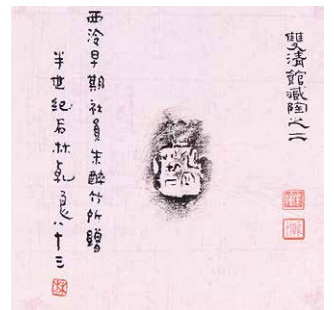 雙清館藏陶之二
西泠早期社員朱醉竹所贈
半世紀后林乾良八十三